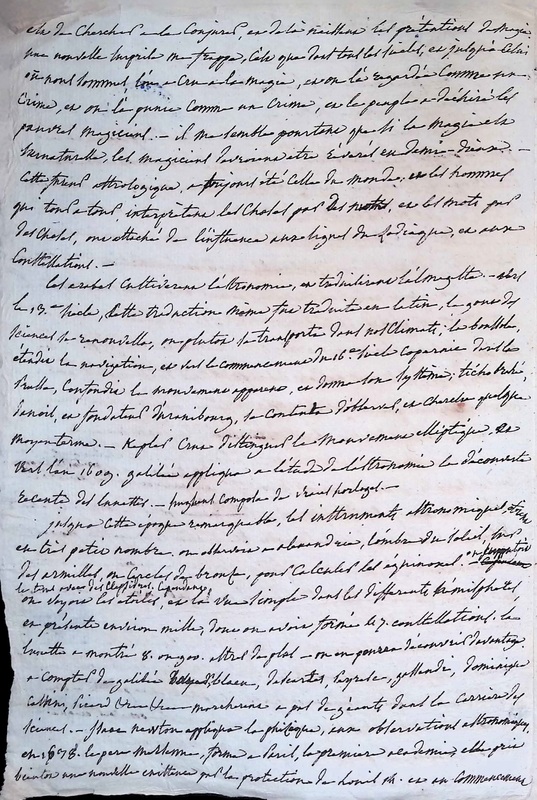 et de Chercher a la Conjurer, et de là naissent les prétentions de magie
une nouvelle surprise me frappe, C'est que dans tous les siecles, et jusqu'a Celui
où nous sommes, on a Cru a la magie, et on la regardée Comme un
Crime, et on la punie Comme un Crime, et le peuple a déchiré les
pauvres magiciens. — il me semble pourtant que si la magie est
surnaturelle, les magiciens devroient etre érigés en demi-dieux. —
Cette astrologique, a toujours été Celle du monde; et les hommes
qui tour a tour interpretent les Choses par les mots, et les mots par
les Choses, ont attaché de l'influence aux signes du Zodiaque, et aux
Constellations. —
Les arabes Cultiverent l'astronomie, et traduisirent l'almageste. — vers
le 13.me siecle, Cette traduction même fut traduite en latin, le gout des
sciences se renouvella, ou plutôt se transporta dans nos Climats; la boussole,
etendit la navigation, et vers le Commencement du 16.e siecle Copernic dans la
Prusse, Confondit le mouvement apparent, et donna son systême; ticho Brahé,
danois, et fondateur d'Uranibourg, se Contenta d'observer, et Chercha quelque
moyen terme. — Kepler Crut distinguer le Mouvement elliptique, et
vers l'an 1609. galilée appliqua a l'étude de l'astronomie la découverte
recente des lunettes. — horloges. —
jusqu'a Cette époque remarquable, les instruments astronomiques étoient
en très petit nombre. on observoit a alexandrie, l'ombre du soleil, sur
des armilles, ou Cercles de bronze, pour Calculer les equinoxes.
on voyoit les etoiles, et la vue simple dans les differents hémispheres,
en présente environ mille, dont on avoit formé 67. constellations. la
lunette a montré 8. ou 900. astres de plus — on en pourra découvrir davantage.
a Compter de galilée descartes, gassendi, dominique
Cassini, picard marcherent a pas de géants dans la Carriere des
sciences. — newton appliqua la phisique, aux observations astronomiques,
en 1638. le pere Mersenne, forma a Paris, la premiere academie, elle prit
bientot une nouvelle existence par la protection de Louis 14. et au Commencement